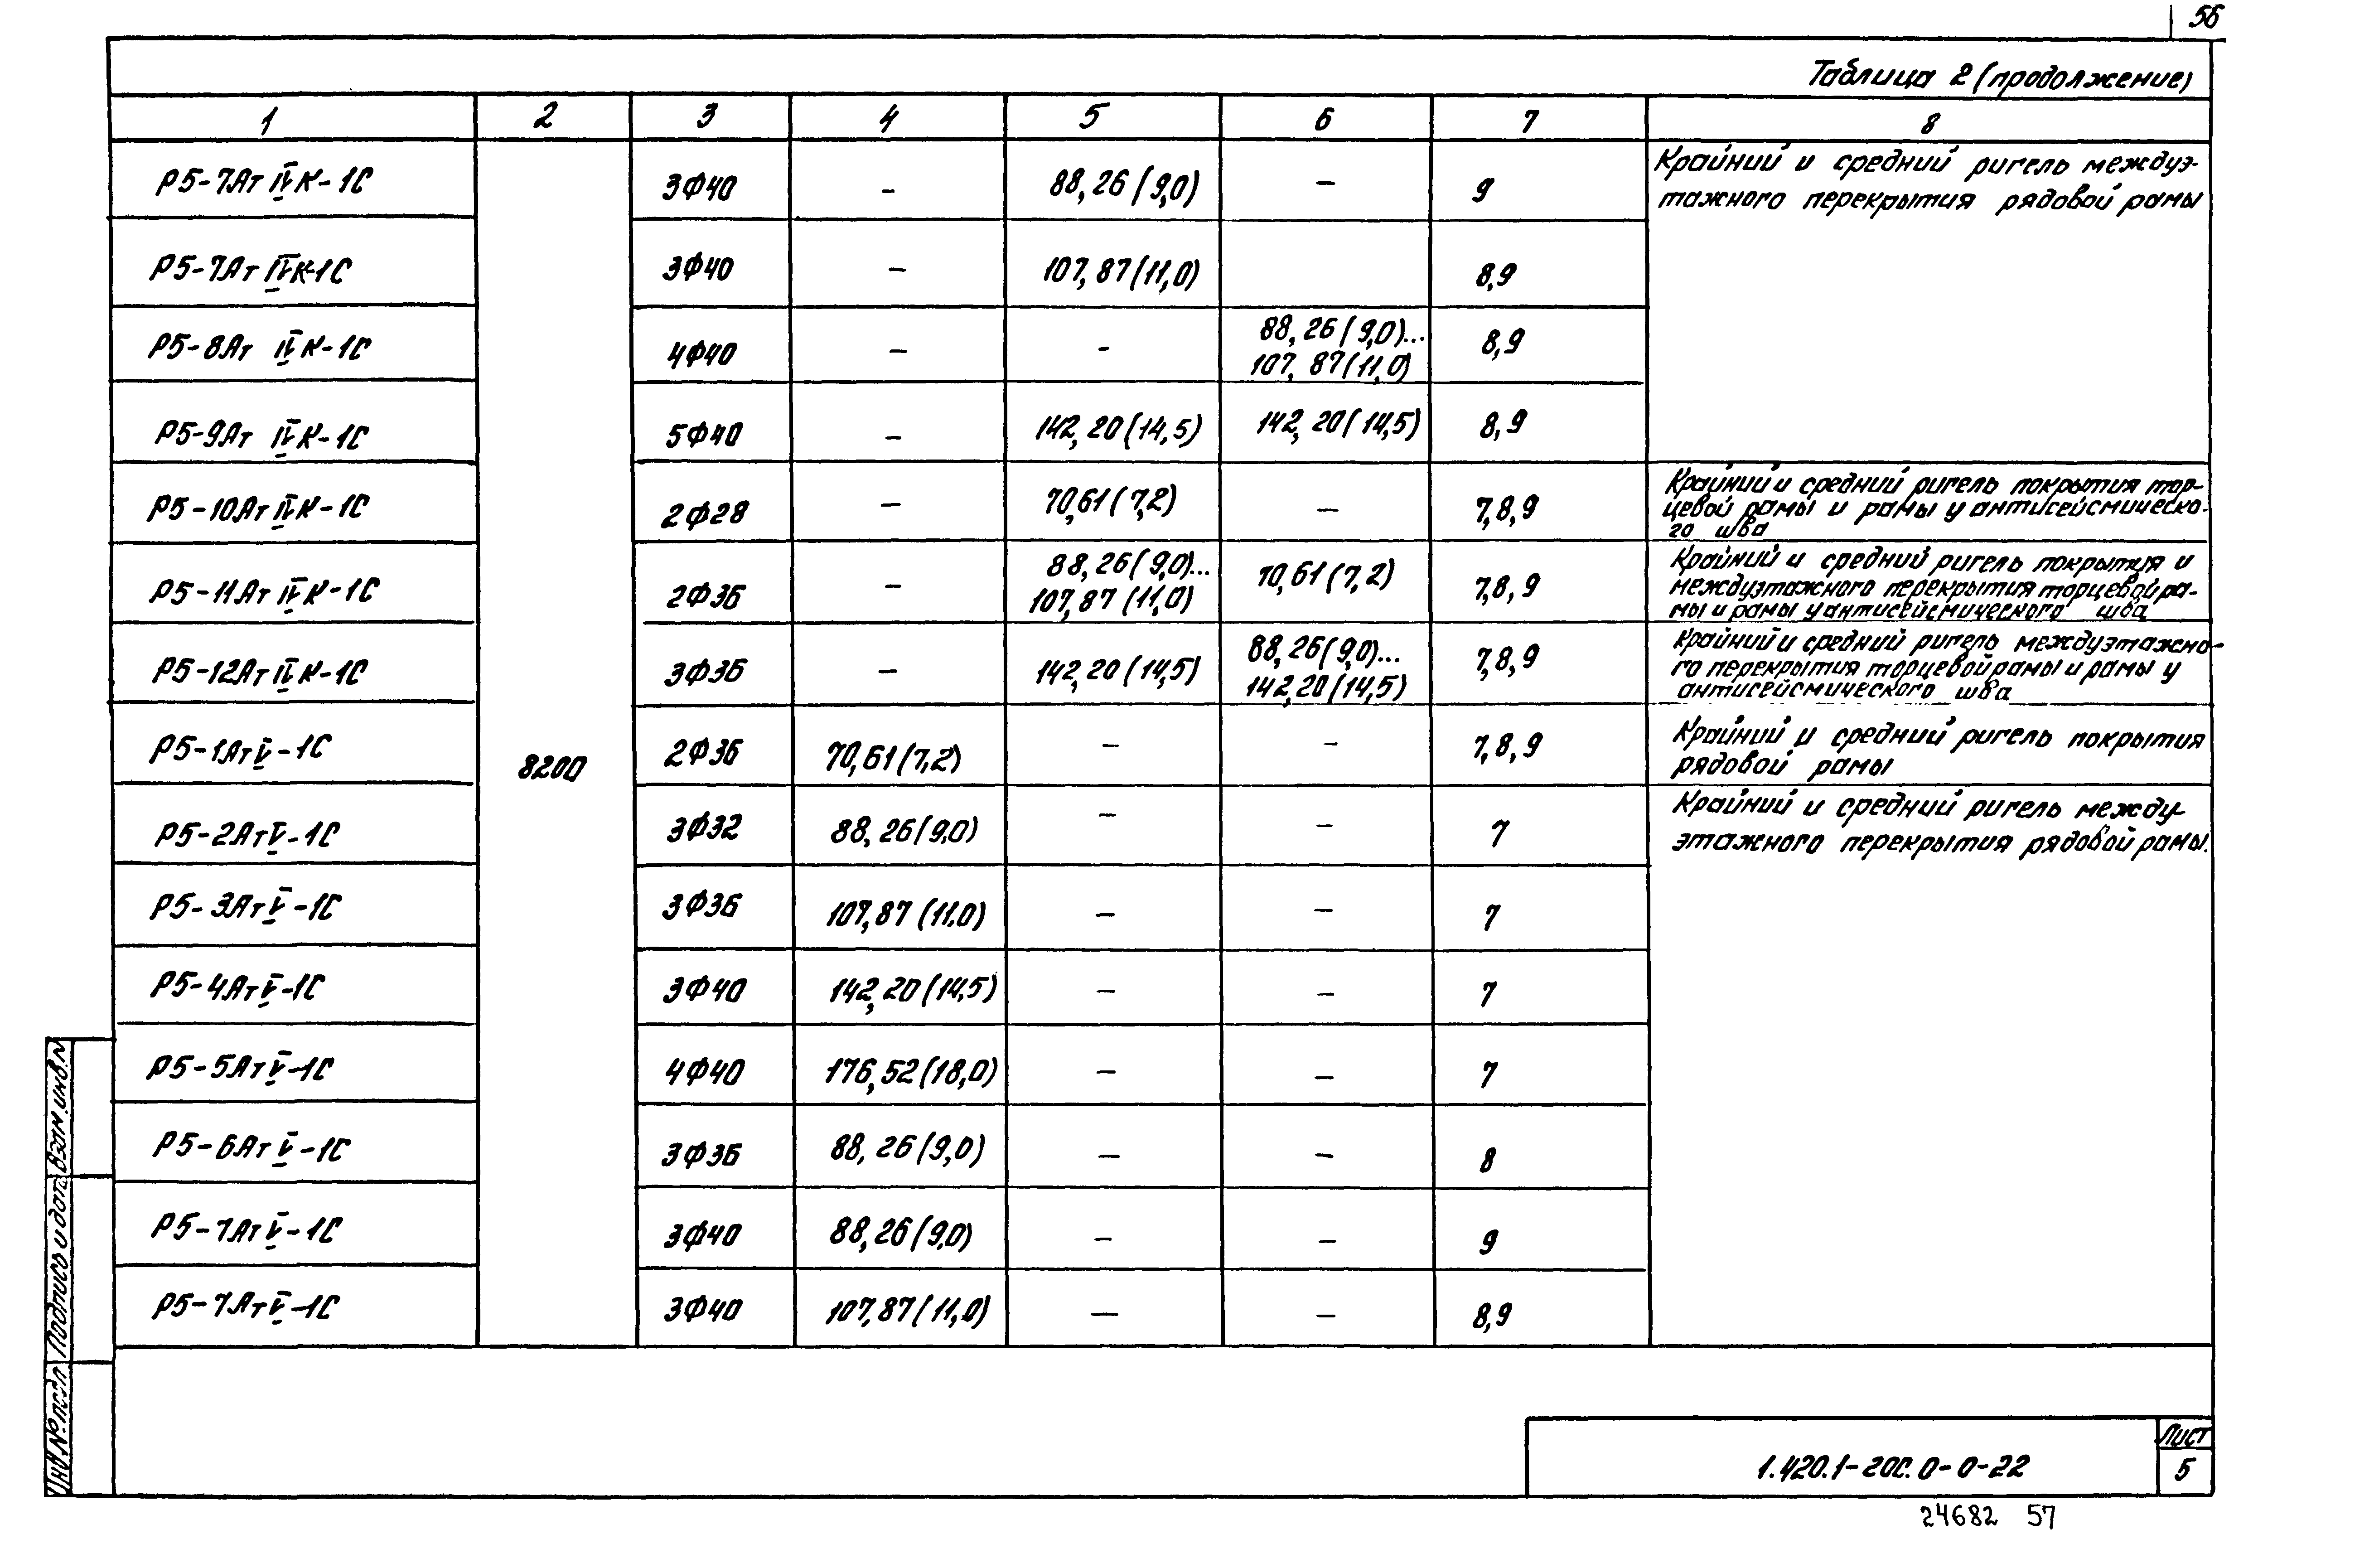 56
Таблица 2 (продолжение)
1 2 3 4 5 6 7 8
Р5-7Ат IV К-1С 3Ф40 – 88,26 (9,0) – 9 Крайний и средний ригель междуэ-
тажного перекрытия рядовой рамы
Р5-7Ат IV К-1С 3Ф40 – 107,87 (11,0) 8,9
Р5-8Ат IV К-1С 4Ф40 – - 88,26 (9,0)... 8,9
107,87 (11,0)
Р5-9Ат IV К-1С 5Ф40 – 142,20 (14,5) 142,20 (14,5) 8,9
Р5-10Ат IV К-1С 2Ф28 – 70,61 (7,2) – 7,8,9 Крайний и средний ригель покрытия тор-
цевой рамы и рамы у антисейсмическо-
го шва
Р5-11Ат IV К-1С 2Ф36 – 88,26 (9,0)... 70,61 (7,2) 7,8,9 Крайний и средний ригель покрытия и
107,87 (11,0) междуэтажного перекрытия торцевой ра-
мы и рамы у антисейсмического шва
Р5-12Ат IV К-1С 3Ф36 – 142,20 (14,5) 88,26 (9,0)... 7,8,9 Крайний и средний ригель междуэтажно-
142,20 (14,5) го перекрытия торцевой рамы и рамы у
антисейсмического шва
8200
Р5-1Ат V-1С 2Ф36 70,61 (7,2) – – 7,8,9 Крайний и средний ригель покрытия
рядовой рамы
Р5-2Ат V-1С 3Ф32 88,26 (9,0) – – 7 Крайний и средний ригель между-
этажного перекрытия рядовой рамы.
Р5-3Ат V-1С 3Ф36 107,87 (11.0) – – 7
Р5-4Ат V-1С 3Ф40 142,20 (14,5) – – 7
Р5-5Ат V-1С 4Ф40 176,52 (18,0) – – 7
Р5-6Ат V-1С 3Ф36 88,26 (9,0) – – 8
Р5-7Ат V-1С 3Ф40 88,26 (9,0) – – 9
Р5-7Ат V-1С 3Ф40 107,87 (11,0) – – 8,9
Взам. инв. N
Подпись и дата
Инв. № подл
1.420.1-20С.0-0-22
Лист
5
24682 57